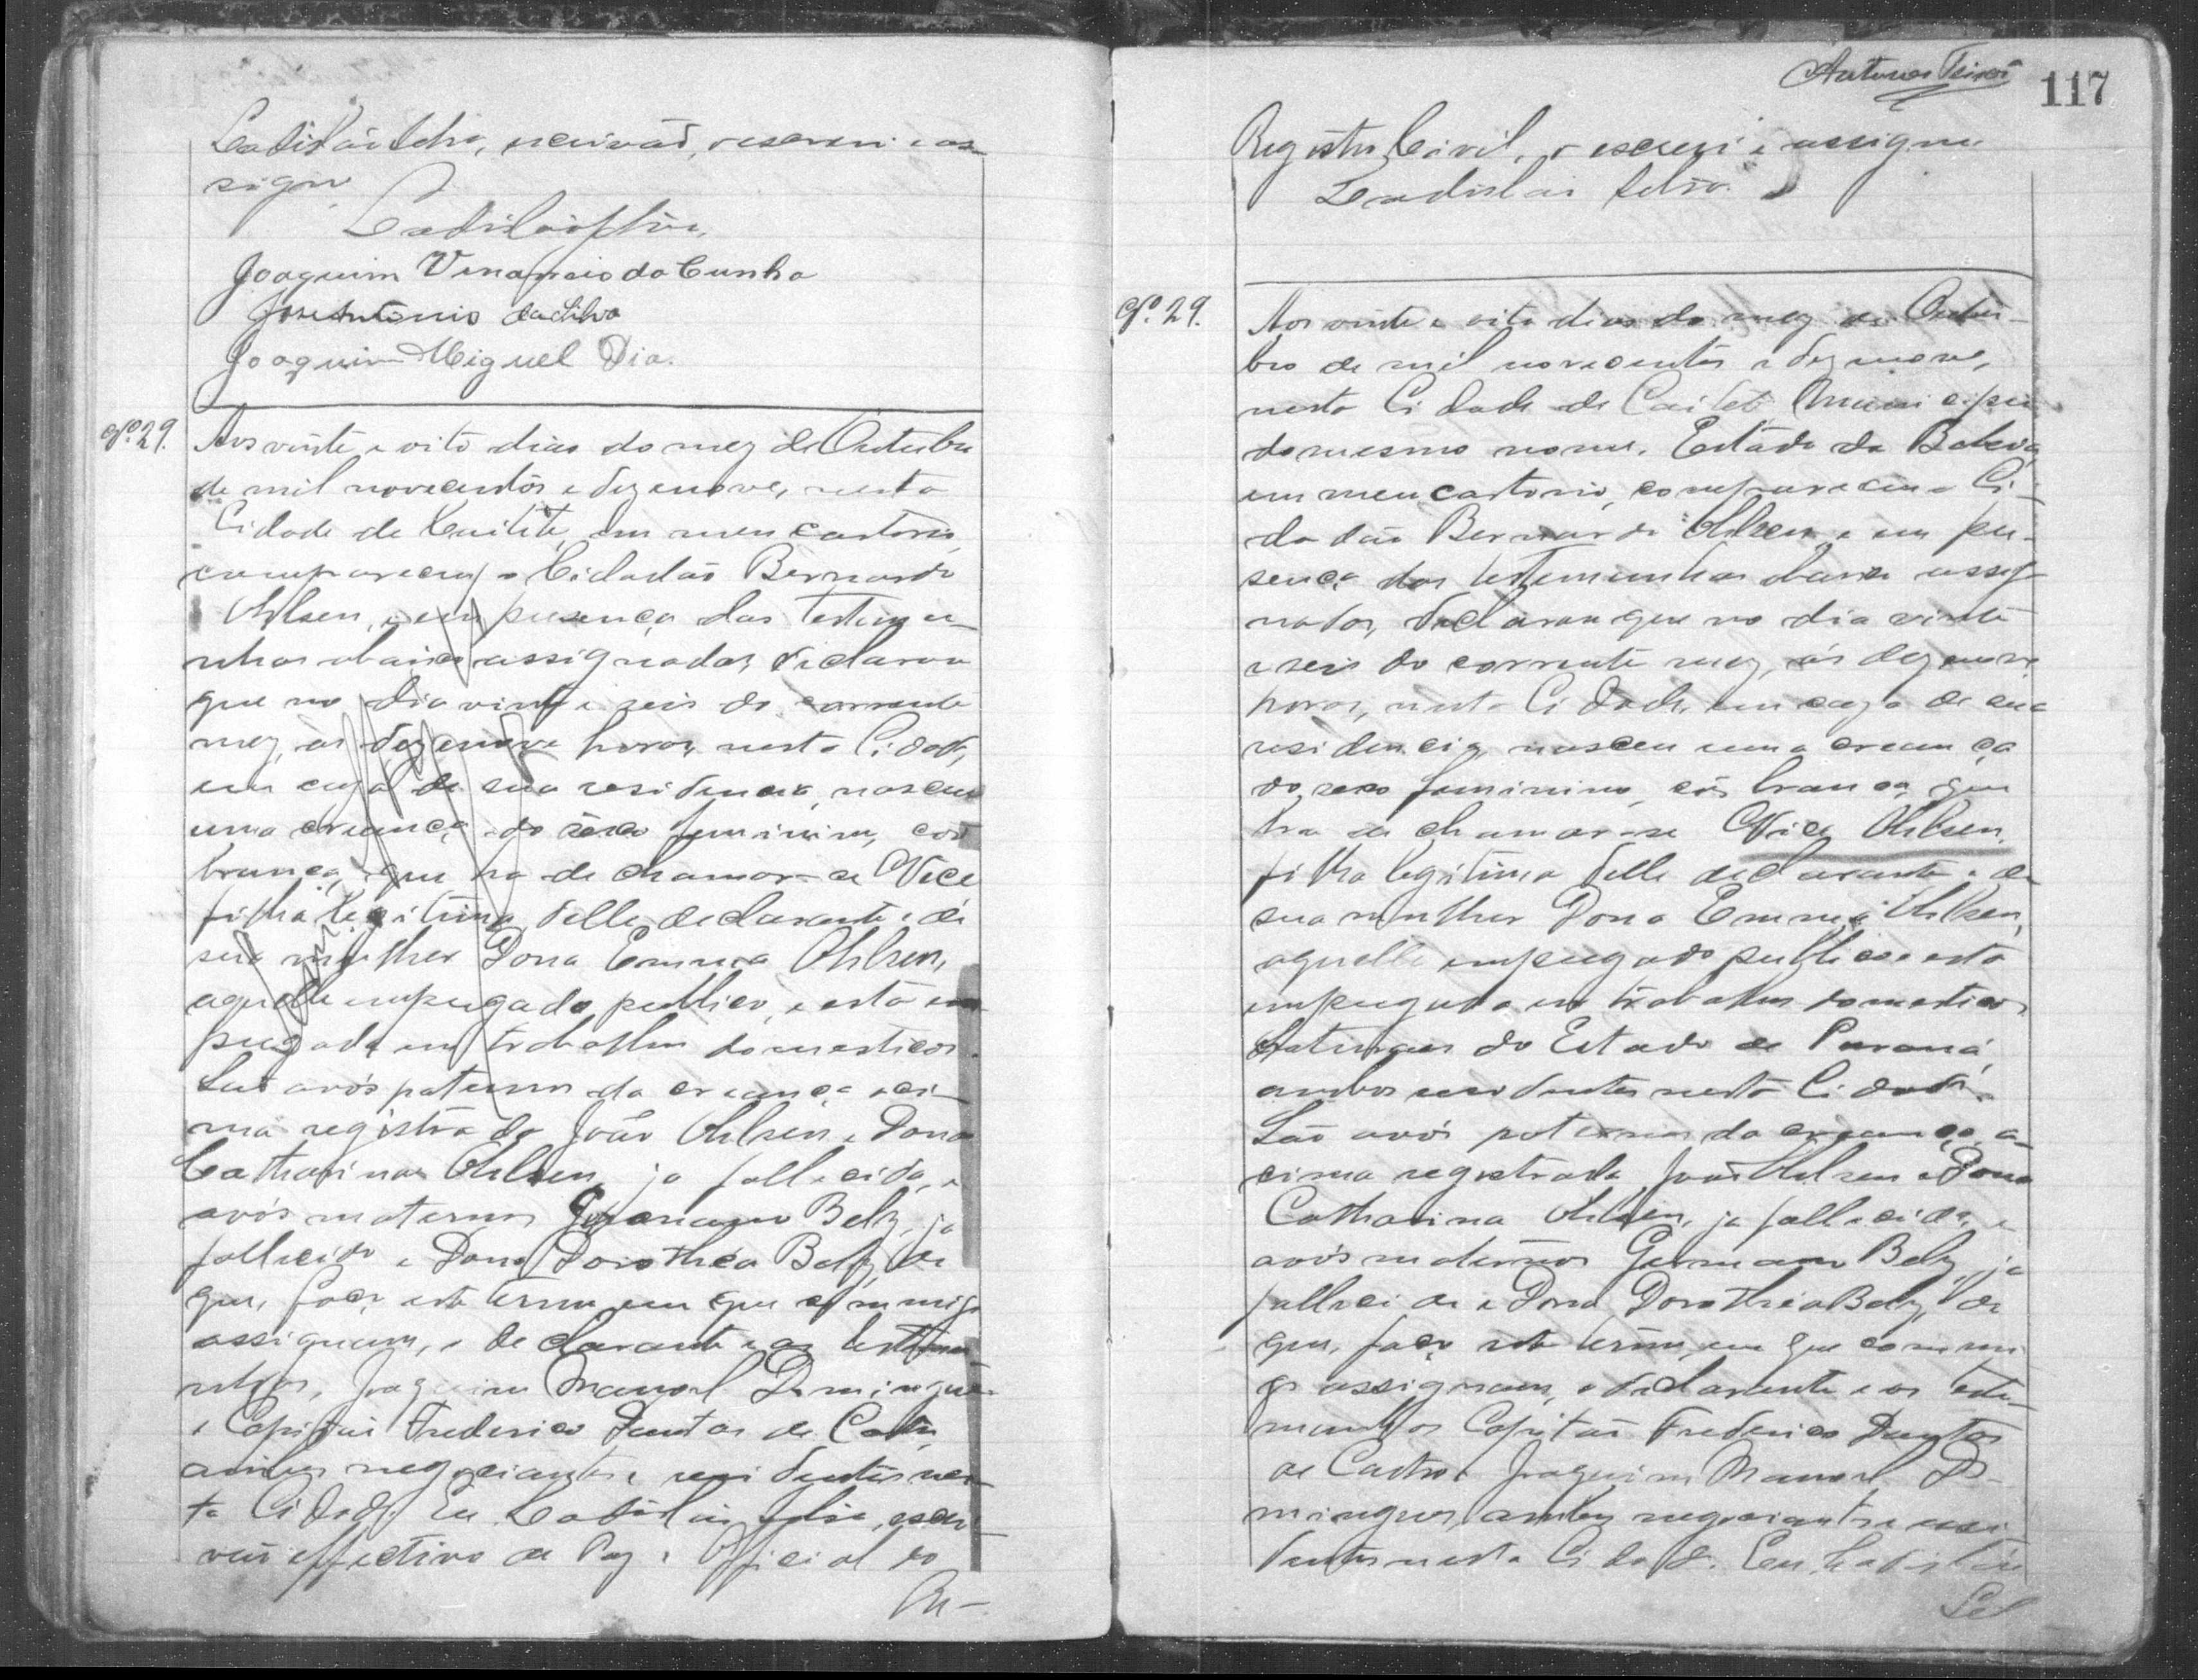 Ladisláo Selva, escrivão, o escrevi e as-
signo
Ladisláo Selva
Joaquim Venancio da Cunha
José Antonio da Silva
Joaquim Miguel Dia.
Nº. 29. Aos vinte e oito dias do mez de Outubro
de mil novecentos e dezenove, nesta
Cidade de Caitité, em meu cartorio,
compareceu o Cidadão Bernardo
Ohlsen, e em presença das testemu-
nhas abaixo assignadas, declarou
que no dia vinte e seis do corrente
mez, as dezenove horas, nesta Cidade,
em caza de sua residencia, nasceu
uma creança do sexo feminino, côr
branca, que ha de chamar-se Nice
filha legitima delle declarante e de
sua mulher Dona Emma Ohlsen,
aquelle empregado publico, e esta em-
pregada em trabalhos domesticos.
São avós paternos da creança aci-
ma registrada João Ohlsen e Dona
Catharina Ohlsen, ja fallecida, e
avós maternos Germano Belz, ja
fallecido e Dona Dorothea Belz, de
que, faço este termo em que commigo
assignam, o declarante e as testemu-
nhas, Joaquim Manoel Domingues
e Capitão Frederico Dantas de Castro,
ambos negociantes e residentes nes-
ta Cidade. Eu Ladisláo Selva, escri-
vão effectivo de Paz e Official do
Re-
Antunes 117
Registro Civil, o escrevi e assigno
Ladisláo Selva
Nº. 29. Aos vinte e oito dias do mez de Outu-
bro de mil novecentos e dezenove,
nesta Cidade de Caiteté Municipio
do mesmo nome, Estado da Bahia,
em meu cartorio, compareceu o Ci-
dadão Bernardo Ohlsen e em pre-
sença das testemunhas abaixo assig-
nadas, declarou que no dia vinte
e seis do corrente mez, ás dezenove
horas, nesta Cidade, em caza de sua
residencia, nasceu uma creança
do sexo feminino, côr branca, que
ha de chamar-se Nice Ohlsen,
filha legitima delle declarante e de
sua mulher Dona Emma Ohlsen,
aquelle empregado publico e esta
empregada em trabalhos domesticos
naturaes do Estado de Paraná,
ambos residentes nesta Cidade.
São avós paternos da creança a-
cima registrada João Ohlsen e Dona
Catharina Ohlsen, ja fallecida, e
avós maternos Germano Belz, ja
fallecido e Dona Dorothea Belz, de
que, faço este termo, em que commi-
go assignam, o declarante e as teste-
munhas Capitão Frederico Dantas
de Castro e Joaquim Manoel Do-
mingues, ambos negociantes e resi-
dentes nesta Cidade. Eu, Ladisláo
Sel